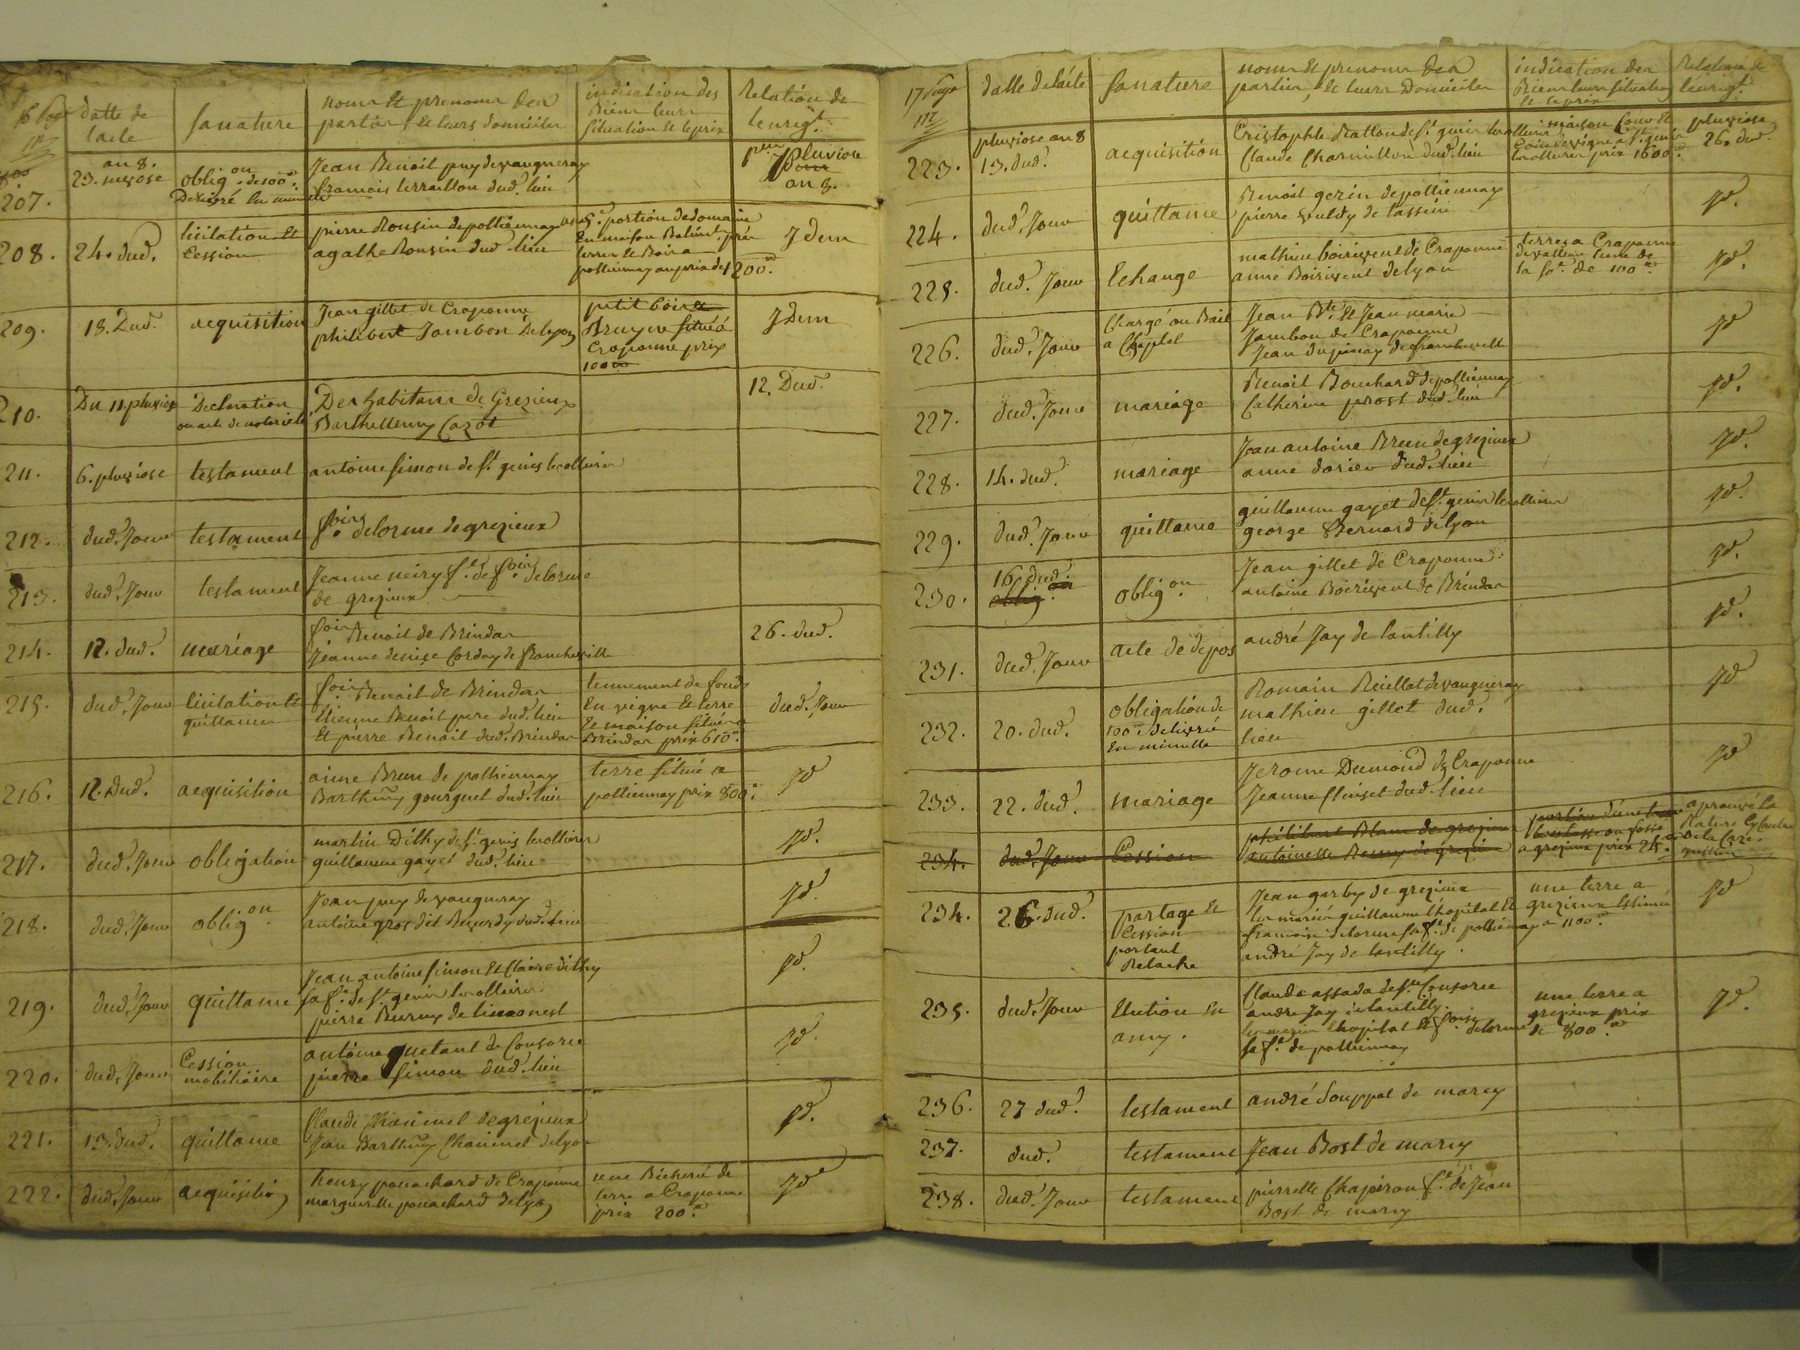 datte de lacte
sanature
noms Et prenoms des parties, et leurs domicilles
indication des Biens leurs situation et leprix
Relation de lenregt.
207.
an 8.
23. nivose
obligon. de 100
Jean Benoit puy devaugneray
francois terraillon dud. lieu
pluviose
an 8.
208.
24. dud.
licitation Et
Cession
pierre Ronsin depollionnay
agathe Ronsin dud. lieu
portion dedomaine
En maison Batiment prés
terres Et Bois a
pollionnay au prix de 1200
Idem
209.
18. Dud.
acquisition
Jean gillet de Craponne
philibert Jambon De lyon
petit bois
Bruyere situé a
Craponne prix
Idem
210.
Du 11 pluviose
Declaration
ou acte de notorieté
Des habitans de Grezieux
Barthellemy Cazot
12. Dud.
211.
6. pluviose
testament
antoine simon de st. genis lesollieres
212.
dud. Jour
testament
fois delorme degrezieux
213.
dud. Jour
testament
Jeanne neiry fe. de fois delorme
de grezieux
214.
12. dud.
mariage
fois Benoit de Brindas
Jeanne denise Corday de francheville
26. dud.
215.
dud. Jour
licitation Et
quittance
fois Benoit de Brindas
Etienne Benoit pere dud. lieu
Et pierre Benoit dud. Brindas
tennement de fonds
En vigne Et terre
Et maison située a
Brindas prix 610
dud. Jour
216.
12. Dud.
acquisition
anne Brun de pollionnay
Barthmy gourguet dud. lieu
terre située a
pollionnay prix 800
Jd
217.
dud. Jour
obligation
martin Dithy de st. genis lesollieres
guillaume gayet dud. lieu
Jd.
218.
dud. Jour
obligon
Jean puy de vaugneray
antoine gros dit dud. lieu
Jd.
219.
dud. Jour
quittance
Jean antoine simon Et Claire dithy
sa fe. de st. genis lesollieres
pierre de limonest
Jd.
220.
dud. Jour
Cession
mobiliaire
antoine quetant de Consorce
pierre simon dud. lieu
Jd.
221.
13. dud.
quittance
Claude Chaumel degrezieux
Jean Barthmy Chaumel delyon
Jd.
222.
dud. Jour
acquisition
henry ponachard de Craponne
marguerite ponachard delyon
une Bicherée de
terre a Craponne
prix 200
Jd
17 page
datte delacte
sanature
noms Et prenoms des parties, Et leurs Domicilles
indication des Biens leurs situation Et le prix
Relation de lenregt.
223.
pluviose an 8
13. dud.
acquisition
Cristophle de st. genis lesollieres
Claude Charmillon dud. lieu
maison Cour Et
Coin de vigne a st. genis
lesollieres prix 1600
pluviose
26. dud.
224.
dud. Jour
quittance
Benoit gerin depollionnay
pierre de tassin
Jd.
225.
dud. Jour
Echange
mathieu boirivent de Craponne
anne Boirivent delyon
terres a Craponne
de valleur Lune de
la so. de 100
Jd.
226.
dud. Jour
Chargé ou Bail
a Cheptel
Jean Bte. Et Jean marie
Jambon de Craponne
Jean dupinay de francheville
Jd
227.
dud. Jour
mariage
Benoit Bouchard depollionnay
Catherine prost dud. lieu
Jd.
228.
14. dud.
mariage
Jean antoine Brun degrezieux
anne dorier dud. lieu
Jd.
229.
dud. Jour
quittance
guillaume gayet de st. genis lesollieres
george Bernard delyon
Jd.
230.
16. dud.
obligon.
Jean gillet de Craponne
antoine Boirivent de Brindas
Jd.
231.
dud. Jour
acte de depos
andré Jay de lantilly
Jd.
232.
20. dud.
obligation de
100 delivrée
En minutte
Romain Reillat devaugneray
mathieu gillet dud.
lieu
Jd
233.
22. dud.
mariage
Jerome Dumond de Craponne
Jeanne flinset dud. lieu
Jd
234.
dud. Jour
Cession
philibert Blanc de grezieux
antoinette de grezieux
portion dune terre
a grezieux prix 24
aprouvé la
Rature Cy Contre
234.
26. dud.
partage Et
Cession
portant
Relache
Jean garby de grezieux
les mariés guillaume lhopital Et
francoise delorme sa fe. de pollionnay
andré Jay de lantilly.
une terre a
grezieux Estimé
a 1100
Jd
235.
dud. Jour
Election En
amy.
Claude assada de ste. Consorce
andre Jay de lantilly.
les mariés lhopital Et foise delorme
sa fe. de pollionnay
une terre a
grezieux prix
de 800
Jd.
236.
27 dud.
testament
andré souppat de marcy
237.
dud.
testament
Jean Bost de marcy
238.
dud. Jour
testament
pierrette Chapiron fe. de Jean
Bost de marcy